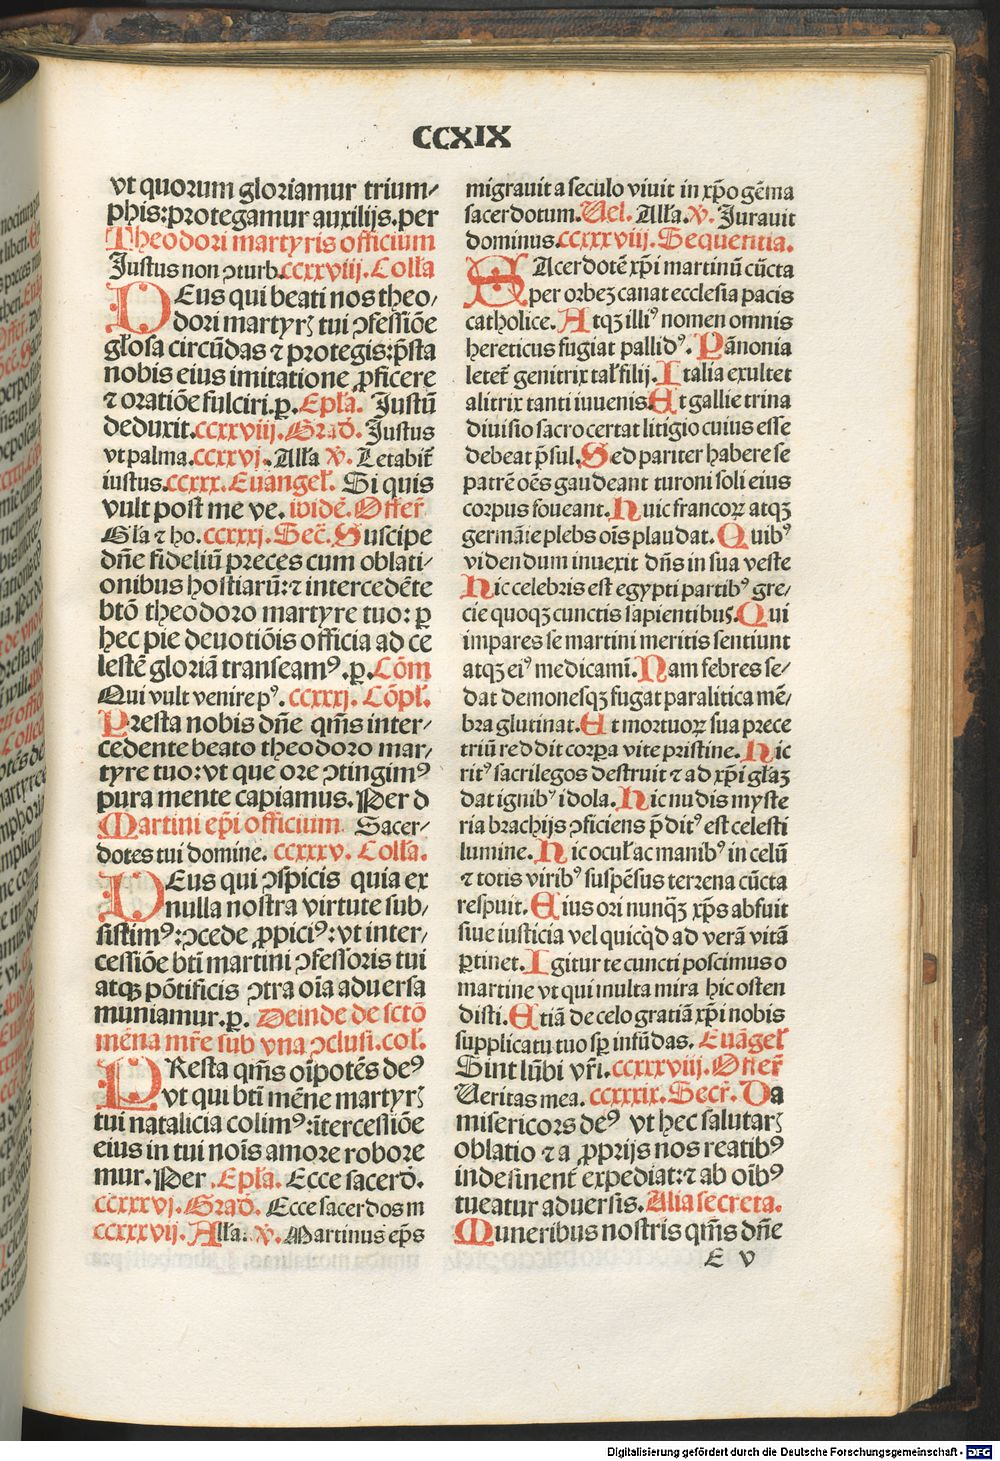 CCXIX
vt quorum gloriamur trium⸗
phis:protegamur auxilijs.per
Theodori martyris officium
Justus non ↄturb.ccxxviij.Coll'a
DEus qui beati nos theo⸗
dori martyrꝫ tui ↄfessiōe
gl'osa circūdas ⁊ protegis:p̄sta
nobis eius imitatione ꝓficere
⁊ oratiōe fulciri.p. Epl'a. Justū
deduxit.ccxxviij.Grad'. Justus
vt palma.ccxxvj. All'a ℣. Letabit̄
iustus.ccxxx.Euangel'. Si quis
vult post me ve. ibidē. Offer̄
Gl'a ⁊ ho. ccxxxj. Sec̄. Suscipe
dn̄e fideliū preces cum oblati⸗
onibus hostiarū:⁊ intercedēte
btō theodoro martyre tuo: ꝑ
hec pie deuotiōis officia ad ce
lestē gloriā transeamꝰ.p. Cōm
Qui vult venire pꝰ. ccxxxj. Cōpl'.
Presta nobis dn̄e qm̄s inter⸗
cedente beato theodoro mar⸗
tyre tuo:vt que ore ↄtingimꝰ
pura mente capiamus. Per d
Martini ep̄i officium Sacer⸗
dotes tui domine. ccxxxv. Coll'a.
DEus qui ↄspicis quia ex
nulla nostra virtute sub⸗
sistimꝰ:ↄcede ꝓpiciꝰ:vt inter⸗
cessiōe bt̄i martini ↄfessoris tui
atqꝫ pōtificis ↄtra oīa aduersa
muniamur.p. Deinde de sctō
mēna mr̄e sub vna ↄclusi. col'.
PResta qm̄s oīpotēs deꝰ
vt qui bt̄i mēne martyrꝫ
tui natalicia colimꝰ:ītercessiōe
eius in tui noīs amore robore
mur. Per. Epl'a. Ecce sacerd'.
ccxxxvj. Grad'. Ecce sacerdos m
ccxxxvij. All'a: ℣. Martinus ep̄s
migrauit a seculo viuit in xp̄o gēma
sacerdotum. Uel. All'a. ℣. Jurauit
dominus.ccxxxviij. Sequentia.
SAcerdotē xp̄i martinū cūcta
per orbeꝫ canat ecclesia pacis
catholice. Atqꝫ illiꝰ nomen omnis
hereticus fugiat pallidꝰ. Pānonia
letet̄ genitrix tal' filij. Italia exultet
alitrix tanti iuuenis. Et gallie trina
diuisio sacro certat litigio cuius esse
debeat p̄sul. Sed pariter habere se
patrē oēs gaudeant turoni soli eius
corpus foueant. Huic francoꝝ atqꝫ
germāie plebs oīs plaudat. Quibꝰ
videndum inuexit dn̄s in sua veste
Hic celebris est egypti partibꝰ gre⸗
cie quoqꝫ cunctis sapientibus. Qui
impares se martini meritis sentiunt
atqꝫ eiꝰ medicami. Nam febres se⸗
dat demonesqꝫ fugat paralitica mē⸗
bra glutinat. Et mortuoꝝ sua prece
triū reddit corpora vite pristine. Hic
ritꝰ sacrilegos destruit ⁊ ad xp̄i gl'aꝫ
dat ignibꝰ idola. Hic nudis myste
ria brachijs ↄficiens p̄ditꝰ est celesti
lumine. Hic ocul' ac manibꝰ in celū
⁊ totis viribꝰ suspēsus terrena cūcta
respuit. Eius ori nunqꝫ xp̄s abfuit
siue iusticia vel quicq̇d ad verā vitā
ꝑtinet. Igitur te cuncti poscimus o
martine vt qui multa mira hic osten
disti. Etiā de celo gratiā xp̄i nobis
supplicatu tuo sꝑ infūdas. Euāgel'
Sint lūbi vr̄i. ccxxxviij. Offer̄
Ueritas mea. ccxxxix. Secr̄. Da
misericors deꝰ vt hec salutarꝫ
oblatio ⁊ a ꝓprijs nos reatibꝰ
indesinent̄ expediat:⁊ ab oībꝰ
tueatur aduersis. Alia secreta.
Muneribus nostris qm̄s dn̄e
E v
Digitalisierung gefördert durch die Deutsche Forschungsgemeinschaft - DFG